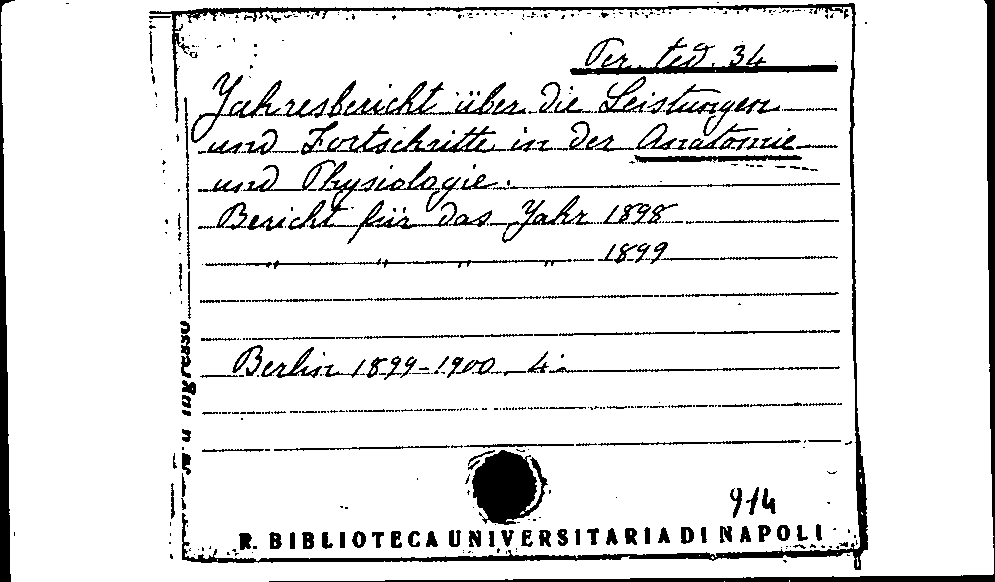 Per. ted. 34
Jahresbericht über die Leistungen
und Fortschritte in der Anatomie
und Physiologie.
Bericht für das Jahr 1898
„ „ „ „ 1899
Berlin 1899-1900. 4:
914
R. BIBLIOTECA UNIVERSITARIA DI NAPOLI
ingresso